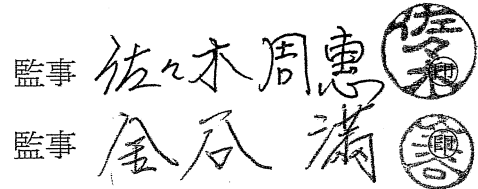 監事 佐々木周惠 佐々木 印
監事 金谷 満 金谷 印